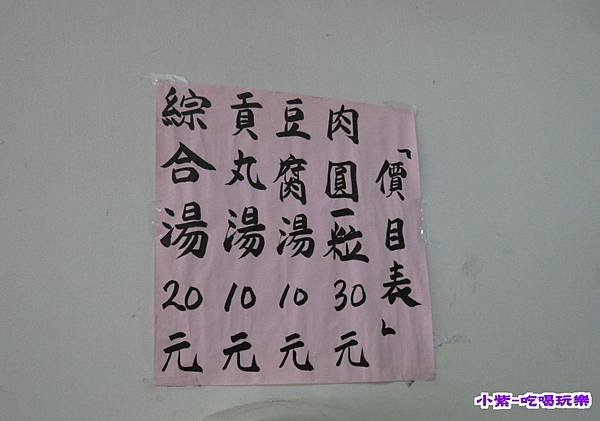 「價目表」
肉圓一粒30元
豆腐湯10元
貢丸湯10元
綜合湯20元
小紫-吃喝玩樂